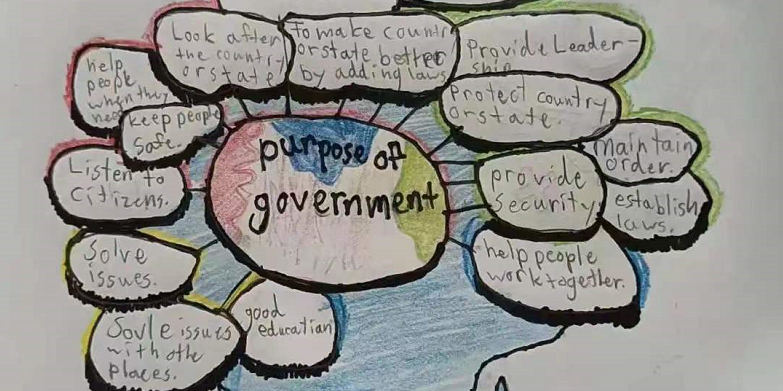 Look after
the country
or state
To make countr
or state better
by adding laws
Provide Leader-
ship
help
people
when they
need
keep people
safe.
Protect country
or state.
purpose of
government
maintain
order.
Listen to
citizens.
provide
security
establish
laws.
Solve
issues.
help people
work together.
good
education
Sovle issues
with othe
places.